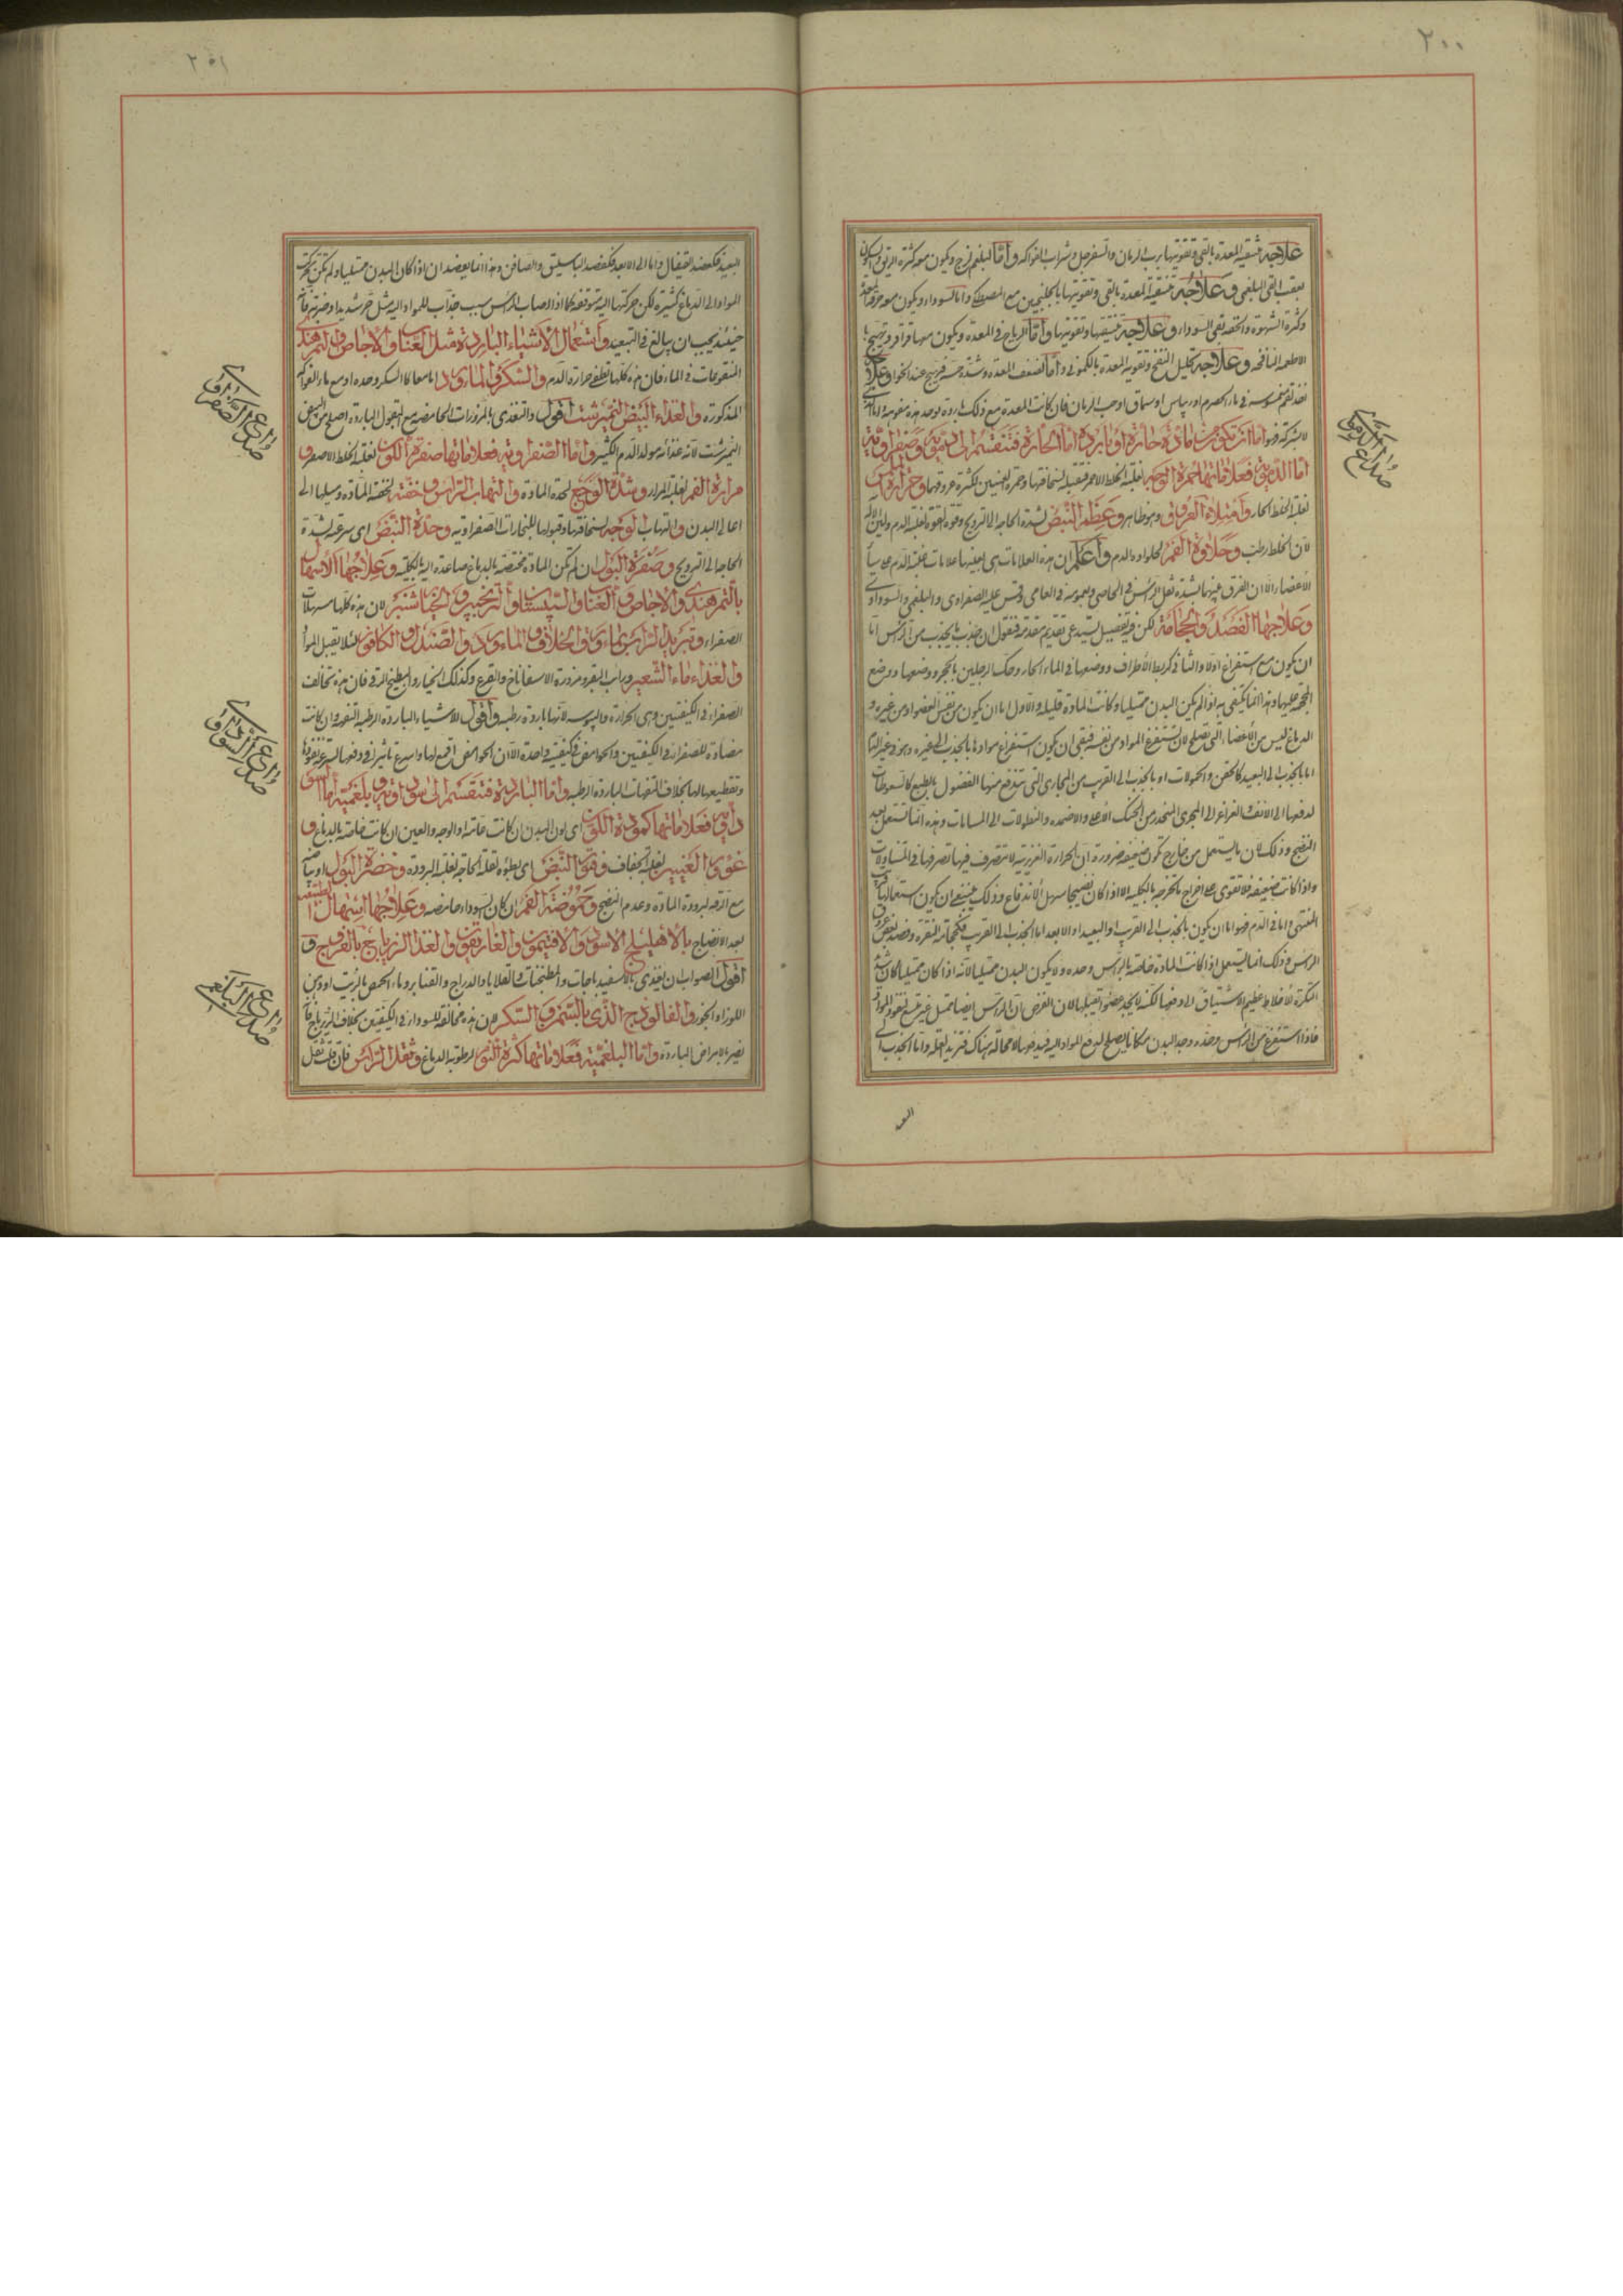 ٢٠٠
علاجه تنقية المعدة بالقي وتقويتها برب الرمان والسفرجل وشراب الفواكه واما البلغم ويكون معه كثرة الريق
بعقب القي البلغمي وعلاجه تنقية المعدة بالقي وتقويتها بالجلنجبين مع المصطكى واما السوداء ويكون معه حرقة المعدة
وكثرة الشهوة والخفة بقي السوداء وعلاجه تنقيتها وتقويتها واما الرياح في المعدة ويكون معها قراقر وتهيج
الاطعمة النافخة وعلاجه تحليل النفخ وتقوية المعدة بالكموني واما لضعف المعدة وشدة حسه فيهيج عند الخوا وعلا
اخذ لقم مغموسة في ماء الحصرم او ريباس او سماق او حب الرمان فان كانت المعدة مع ذلك باردة
اما ان تكون من مادة حارة او باردة اما الحارة فتنقسم الى دموية وصفراوية
اما الدموية فعلاماتها حمرة الوجه لغلبة الخلط الاحمر وحمرة العينين لكثرة عروقها وحرارة
لغلبة الخلط الحار وامتلاء العروق وهو ظاهر وعظم النبض لشدة الحاجة الى الترويح وقوة القوة لغلبة الدم ولين الآلة
لان الخلط رطب وحلاوة الفم لحلاوة الدم واعلم ان هذه العلامات هي بعينها علامات غلبة الدم على سائر
الاعضاء الا ان الفرق بينهما بشدة ثقل الراس في الخاص وبعمومه في العامي وقس عليه الصفراوي والبلغمي والسوداوي
وعلاجها الفصد والحجامة لكن في تفصيل يستدعي تقديم مقدمة فنقول ان جذب ما يجذب من الراس اما
ان يكون مع استفراغ اولا والثاني كربط الاطراف ووضعها في الماء الحار وحك الرجلين بالحجر ووضعها ووضع
المحجمة عليها وهذا انما يكتفى به اذا لم يكن البدن ممتليا وكانت المادة قليلة والاول اما ان يكون من نفس العضو او من غيره و
الدماغ ليس من الاعضاء التي تصلح لان تستفرغ المواد من نفسه فبقي ان يكون استفراغ موادها بالجذب الى غيره وهو في غير الدم
اما بالجذب الى البعيد كالحقن والحمولات او بالجذب الى القريب من المجاري التي تندفع منها الفضول بالطبع كالسعوطات
لدفعها الى الانف والغراغر الى المجرى المنحدر من الحنك الاعلى والاضمدة والنطولات الى المسامات وهذه انما تستعمل بعد
النضج وذلك لان ما يستعمل من خارج تكون ضعيفة ضرورة ان الحرارة الغريزية لا تتصرف فيها تصرفها في المتناولات
واذا كانت ضعيفة فلا تقوى على اخراج ما تخرجه بالكلية الا اذا كان نضيجا سهل الاندفاع وذلك ينبغي ان يكون استعمالها
المنتهى واما في الدم فهو اما ان يكون بالجذب الى القريب او البعيد او الابعد اما الجذب الى القريب فكحجامة النقرة وفصد بعض عروق
الراس وذلك انما يستعمل اذا كانت المادة خاصة بالراس وحده ولا يكون البدن ممتليا لانه اذا كان ممتليا كان شديد
فاذا استفرغ من الراس وحده وجد البدن مكانا يصلح لدفع المواد اليه فيدفعها لا محالة هناك فتزيد العلة واما الجذب الى
البعيد
صداع الدموى
٢٠١
البعيد فكفصد القيفال واما الى الابعد فكفصد الباسليق والصافن وهذا انما يفصدان اذا كان البدن ممتليا ولم تكن تحركت
المواد الى الدماغ كثيرة لكن حركتها اليه متوقعة كما اذا اصاب الراس سبب جذاب للمواد اليه مثل حر شديد او ضربة فانه
حينئذ يجب ان يبالغ في التبعيد واستعمال الاشياء الباردة مثل العناب والاجاص والتمر هندي
المنقوعات في الماء فان هذه كلها تطفي حرارة الدم والسكر والماورد اما معا كالسكر وحده او مع ماء الفواكه
المذكورة والغذاء البيض النمبرشت اقول والتغذي بالمزورات الحامضة مع البقول الباردة اصلح من البيض
النمبرشت لانه غذائه مولد الدم الكثير واما الصفراوية فعلاماتها صفرة اللون لغلبة الخلط الاصفر و
مرارة الفم لغلبة المرار وشدة الوجع لحدة المادة والتهاب الراس وخفته لخفة المادة وميلها الى
اعالي البدن والتهاب الوجه لسخافتها وقبولها للبخارات الصفراوية وحدة النبض اي سرعته لشدة
الحاجة الى الترويح وصفرة البول ان لم تكن المادة مختصة بالدماغ صاعدة اليه بالكلية وعلاجها الاسهال
بالتمر هندي والاجاص والعناب والسپستان والترنجبين والخيارشنبر لان هذه كلها مسهلات
الصفراء وتبريد الراس بماء ورد والخلاف والماورد والصندل والكافور لئلا يقبل المواد
والغذاء ماء الشعير وراب البقر ومزورة الاسفاناخ والقرع وكذلك الخيار والبطيخ الرقي فان هذه تخالف
الصفراء في الكيفيتين وهي الحرارة واليبوسة لانها باردة رطبة واقول الاشياء الباردة الرطبة التفهة وان كانت
مضادة للصفراء في الكيفيتين والحوامض في كيفية واحدة الا ان الحوامض اقمع لها واسرع تاثيرا في دفعها لسرعة نفوذها
وتقطيعها لها بخلاف التفهات الباردة الرطبة واما الباردة فتنقسم الى سوداوية وبلغمية اما السو
داوية فعلاماتها كمودة اللون اي لون البدن ان كانت عامة او الوجه والعين ان كانت خاصة بالدماغ و
غؤور العينين لغلبة الجفاف وفتور النبض اي بطؤه لقلة الحاجة لغلبة البرودة وخضرة البول او بياضه
مع الرقة لبرودة المادة وعدم النضج وحموضة الفم ان كان السوداء حامضة وعلاجها اسهال الطبيعة
بعد الانضاج بالاهليلج الاسود والافتيمون والغاريقون والغذا الزيرباج بالفروج و
اقول الصواب ان يغتذي بالاسفيدباجات والمطنجنات والقلايا والدراج والقنابر وماء الحمص بالزيت او دهن
اللوز او الجوز والفالوذج الذي بالسمن والسكر فان هذه مخالفة للسوداء في الكيفيتين بخلاف الزيرباج فانه
يضر بالامراض الباردة واما البلغمية فعلاماتها كثرة النوم لرطوبة الدماغ وثقل الراس فان قلت ثقل
صداع الصفراوى
صداع السوداوى
صداع البلغمى